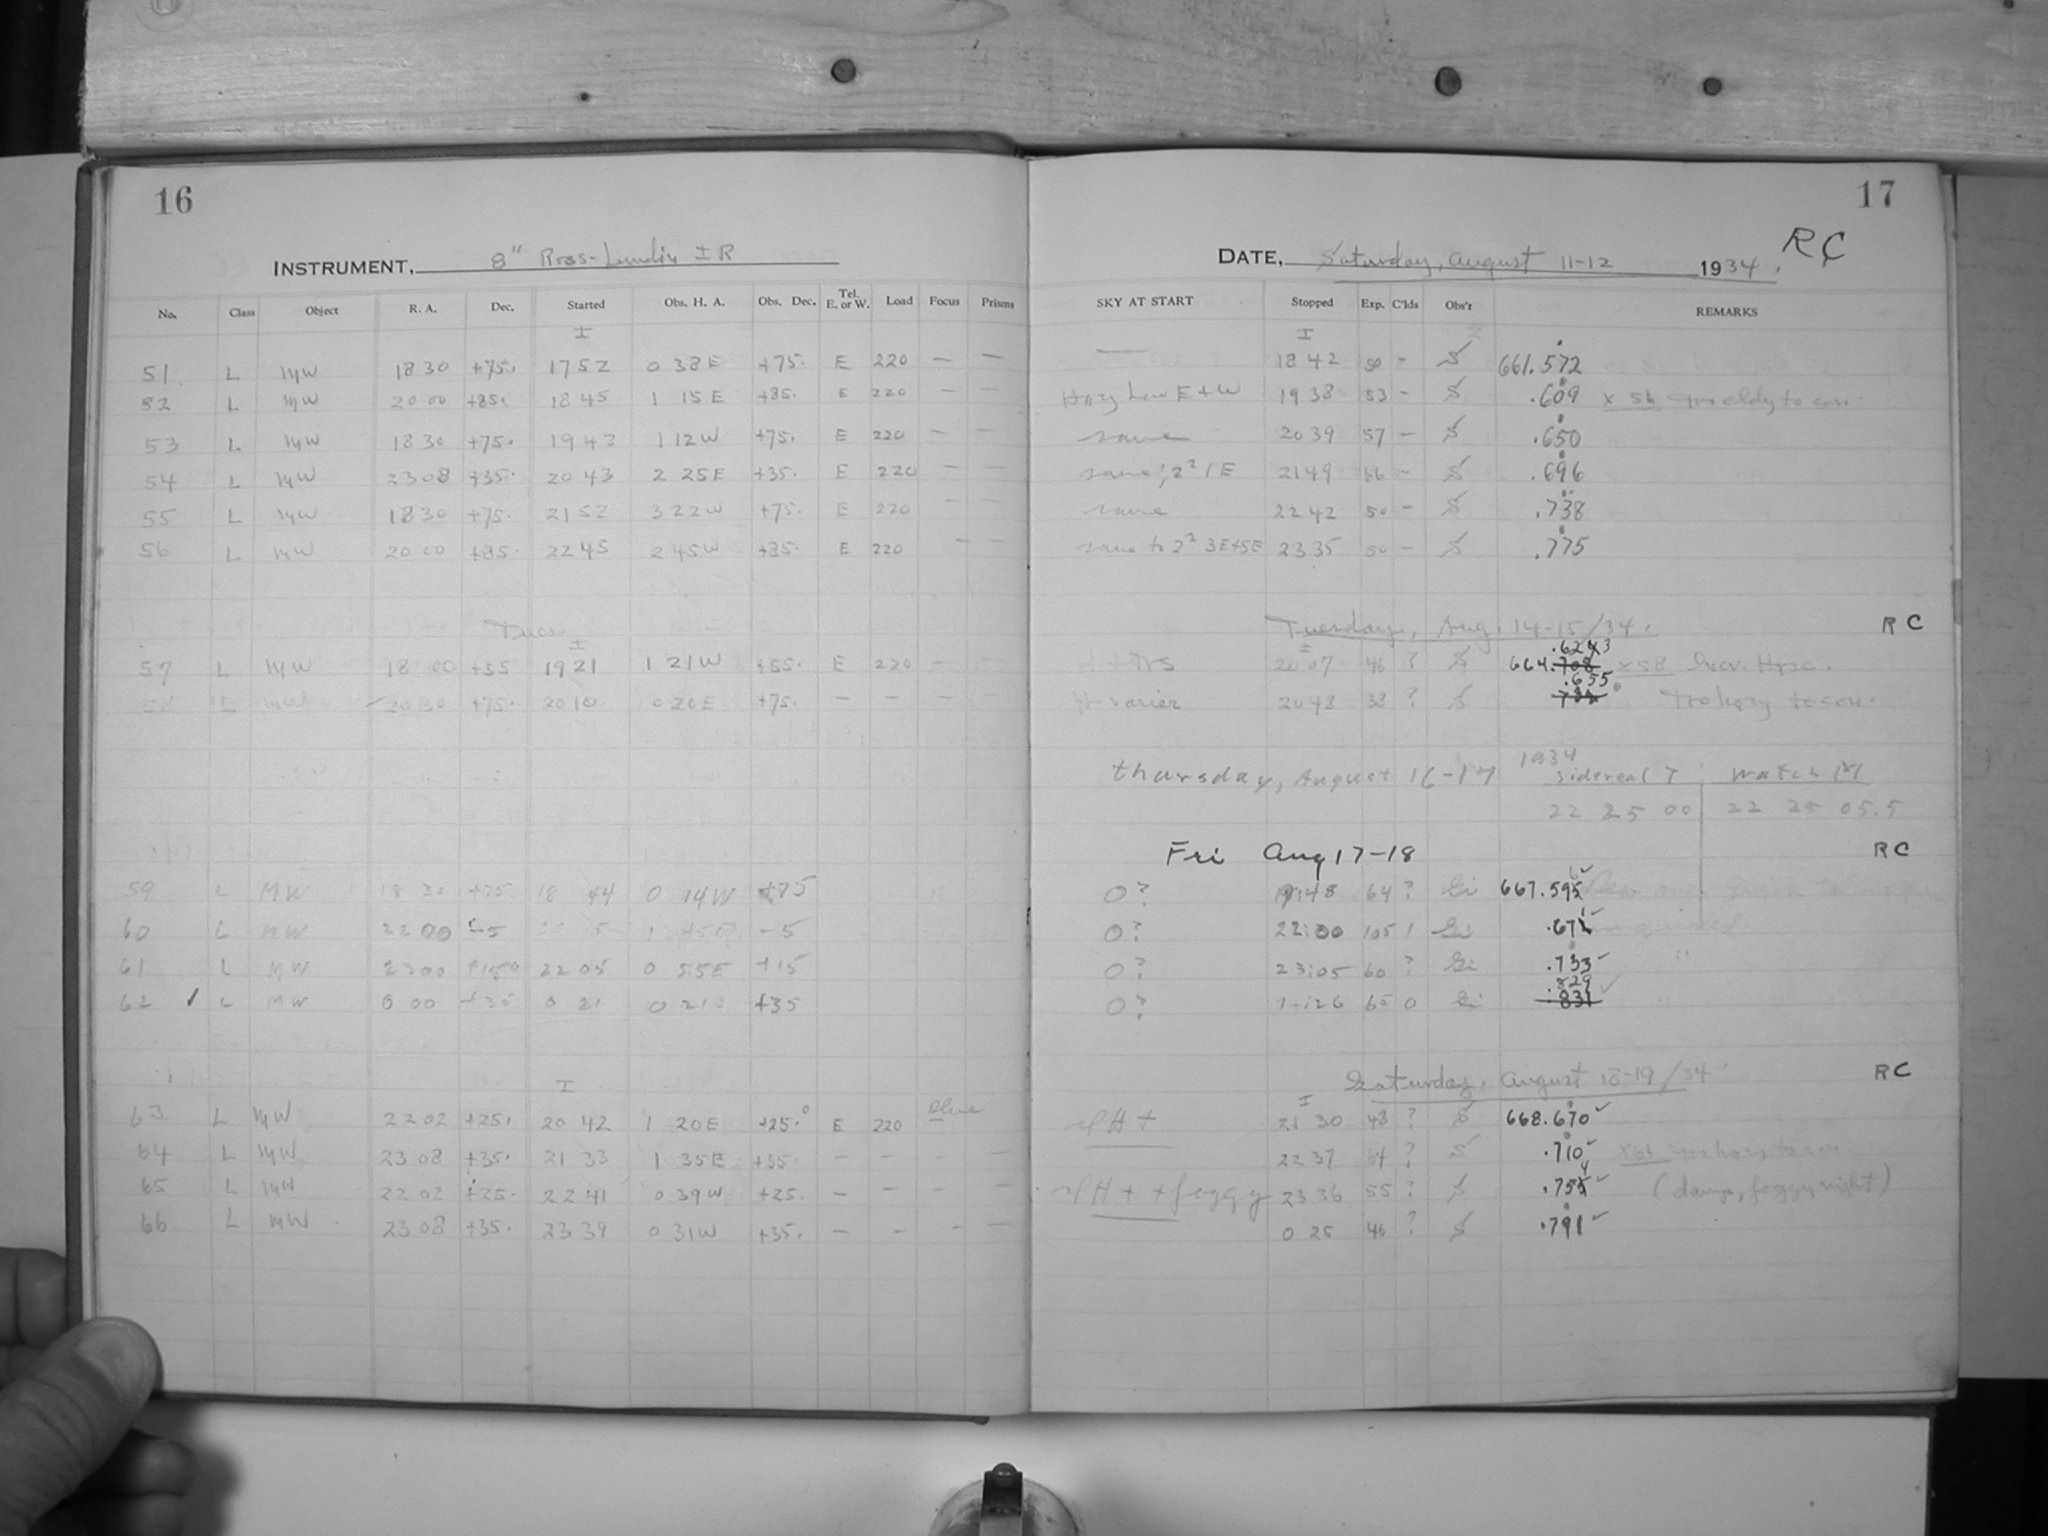 16
INSTRUMENT, 8" Ross-Lundin I R
No. Class Object R. A. Dec. Started Obs. H. A. Obs. Dec. Tel. E. or W. Load Focus Prisms
I
51 L MW 18 30 +75. 17 52 0 38 E +75. E 220 — —
52 L MW 20 00 +85. 18 45 1 15 E +85. E 220 — —
53 L MW 18 30 +75. 19 42 1 12 W +75. E 220 — —
54 L MW 23 08 +35. 20 43 2 25 E +35. E 220 — —
55 L MW 18 30 +75. 21 52 3 22 W +75. E 220 — —
56 L MW 20 00 +85. 22 45 2 45 W +85. E 220 — —
Tues.
I
57 L MW 18 00 +55 19 21 1 21 W +55. E 220 — —
58 L MW 20 30 +75. 20 10 0 20 E +75. — — — —
59 L MW 18 30 +75 18 44 0 14 W +75
60 L MW 22 00 -5 20 15 1 45 E -5
61 L MW 23 00 +15° 22 05 0 55 E +15
62 L MW 0 00 +35 0 21 0 21 +35
I
63 L MW 22 02 +25. 20 42 1 20 E +25.° E 220
64 L MW 23 08 +35. 21 33 1 35 E +35. — — — —
65 L MW 22 02 +25. 22 41 0 39 W +25. — — — —
66 L MW 23 08 +35. 23 39 0 31 W +35. — — — —
17
DATE, Saturday, August 11-12 1934. RC
SKY AT START Stopped Exp. C'lds Obs'r REMARKS
I
— 18 42 50 - S 661.572
Hazy Low E + W 19 38 53 - S .609 x 56
same 20 39 57 — S .650
same; 2² 1 E 21 49 66 - S .696
same 22 42 50 - S .738
same to 2² 3E+5E 23 35 50 — S .775
Tuesday, Aug. 14-15/34. RC
I
20 07 46 ? S 664.708 .6243 x58 Incr. Haze.
H varies 20 48 38 ? S .655 Too hazy to con.
Thursday, August 16-17 1934 Sidereal T Watch
22 25 00 22 25 05.5
Fri Aug 17-18 RC
0? 19:48 64 ? Gi 667.595
0? 22:00 105 1 Gi .671
0? 23:05 60 ? Gi .733 "
0? 1:26 65 0 Gi .831 .829 "
Saturday, August 18-19/34 RC
I
H+ 21 30 48 ? S 668.670
22 37 64 ? S .710 x66
H+ + foggy 23 36 55 ? S .754 (damp, foggy night)
0 25 46 ? S .791